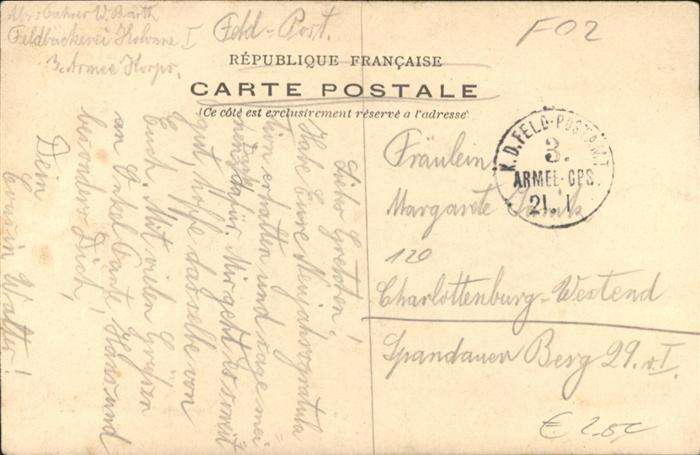 W. Barth
Feldbäckerei Kolonne I
3. Armee Korps.
Feld-Post.
F02
RÉPUBLIQUE FRANÇAISE
CARTE POSTALE
(Ce côté est exclusivement réservé a l'adresse
K.D. FELD-POSTAMT
3.
ARMEE-CPS.
21. 1
Liebe Gretchen!
Habe Eure Neujahrsgratula
tion erhalten und sage mei
nen dafür. Mir geht es soweit
gut, hoffe dasselbe von
Euch. Mit vielen Grüßen
an Onkel Tante, Hans und
besonders Dich,
Dein
Cousin Walter!
Fräulein
Margarete
120
Charlottenburg-Westend
Spandauer Berg 29. v. I.
€ 2.50